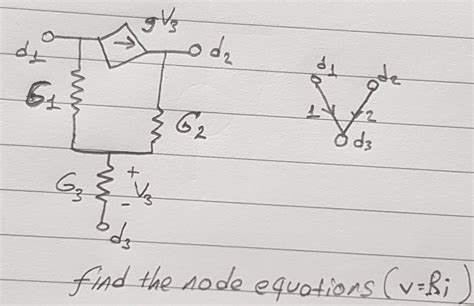 gV3
d1
d2
G1
G2
G3
+
V3
-
d3
d1
d2
1
2
d3
find the node equations (v=Ri)